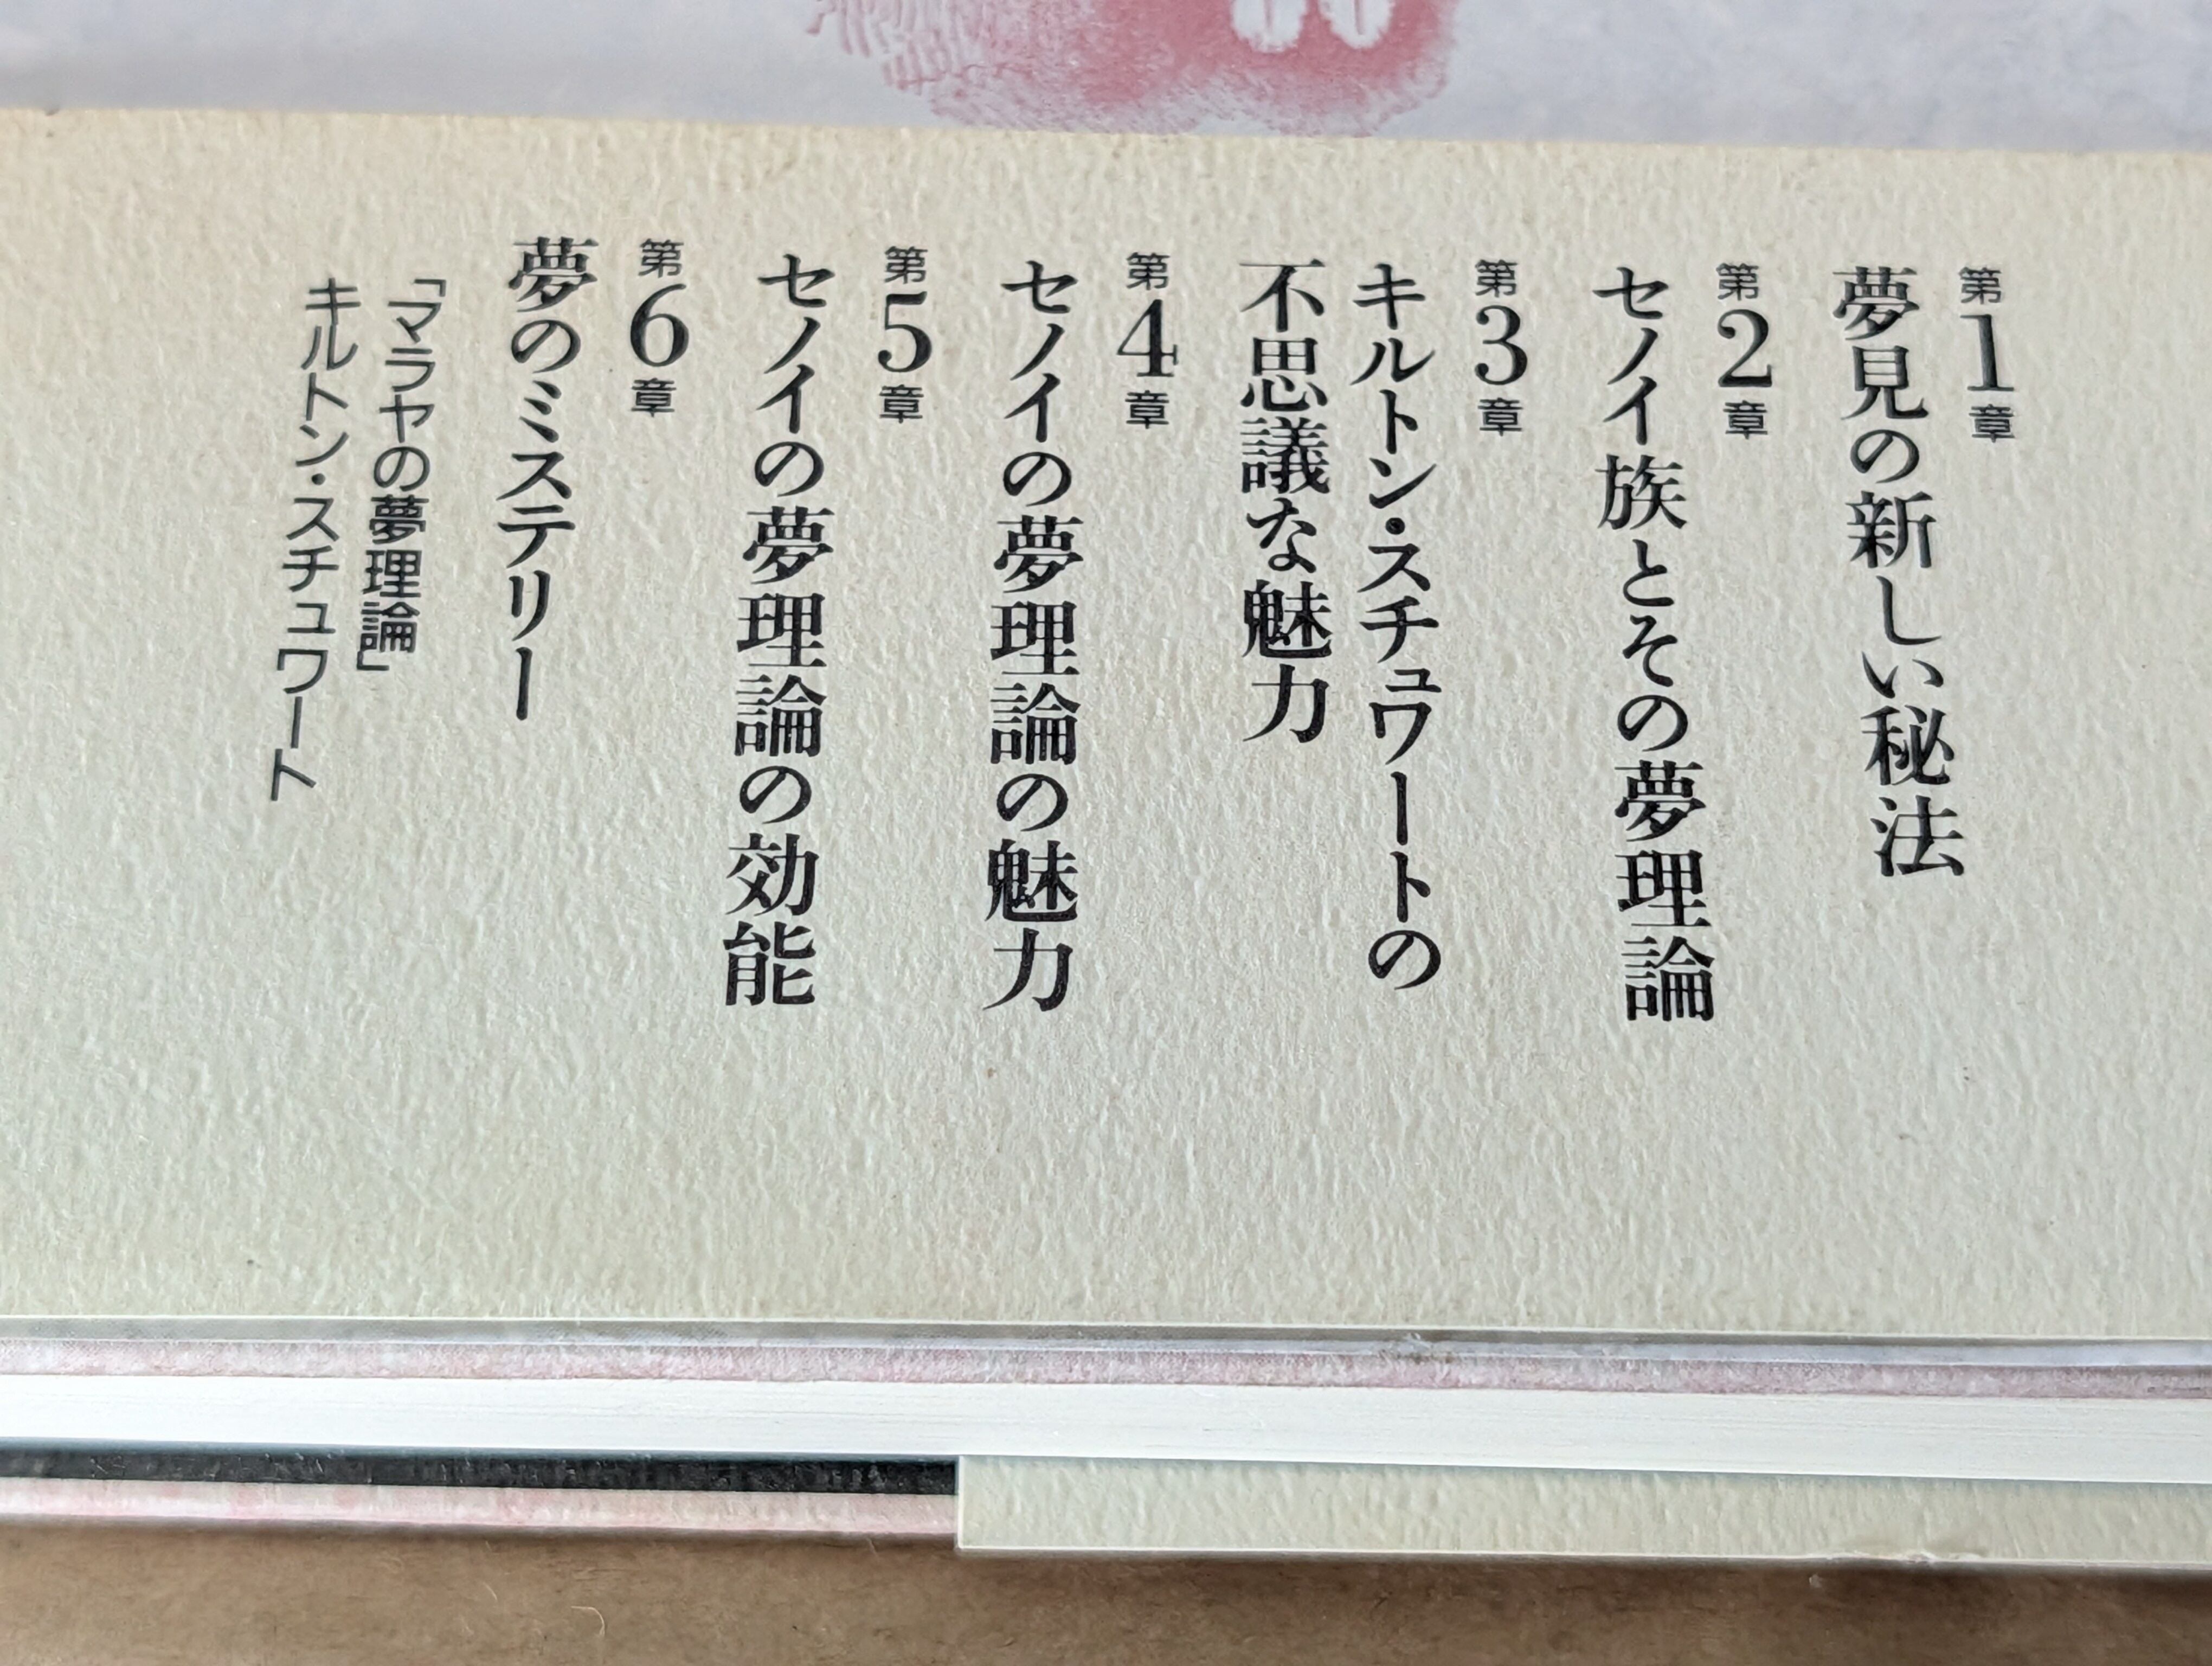 第1章
夢見の新しい秘法
第2章
セノイ族とその夢理論
第3章
キルトン・スチュワートの
不思議な魅力
第4章
セノイの夢理論の魅力
第5章
セノイの夢理論の効能
第6章
夢のミステリー
「マラヤの夢理論」
キルトン・スチュワート